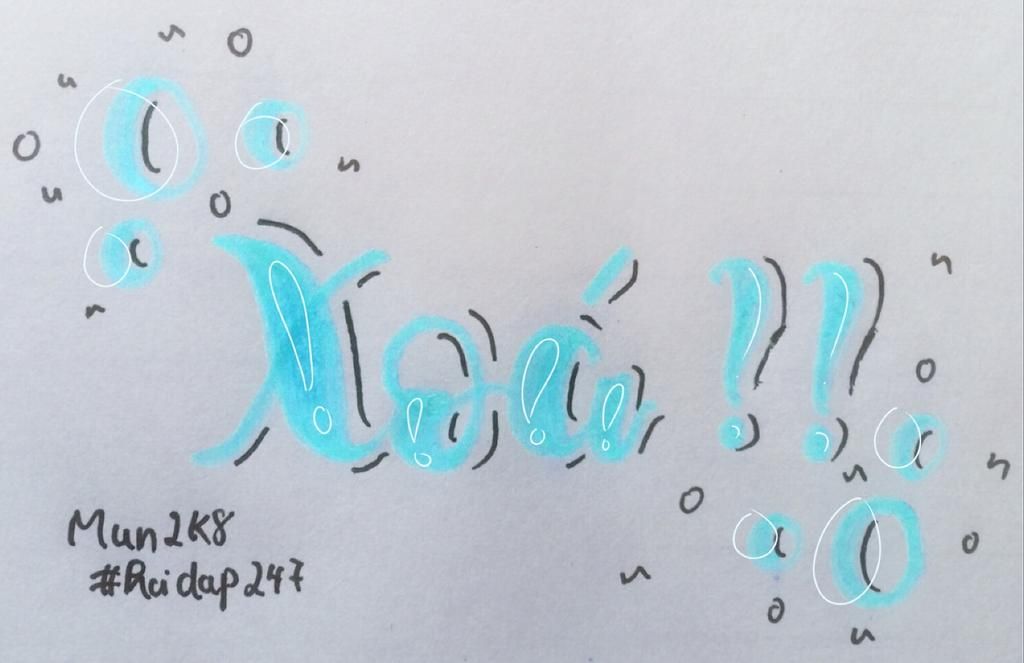 Xoá !!
Mun2K8
#Hoidap247